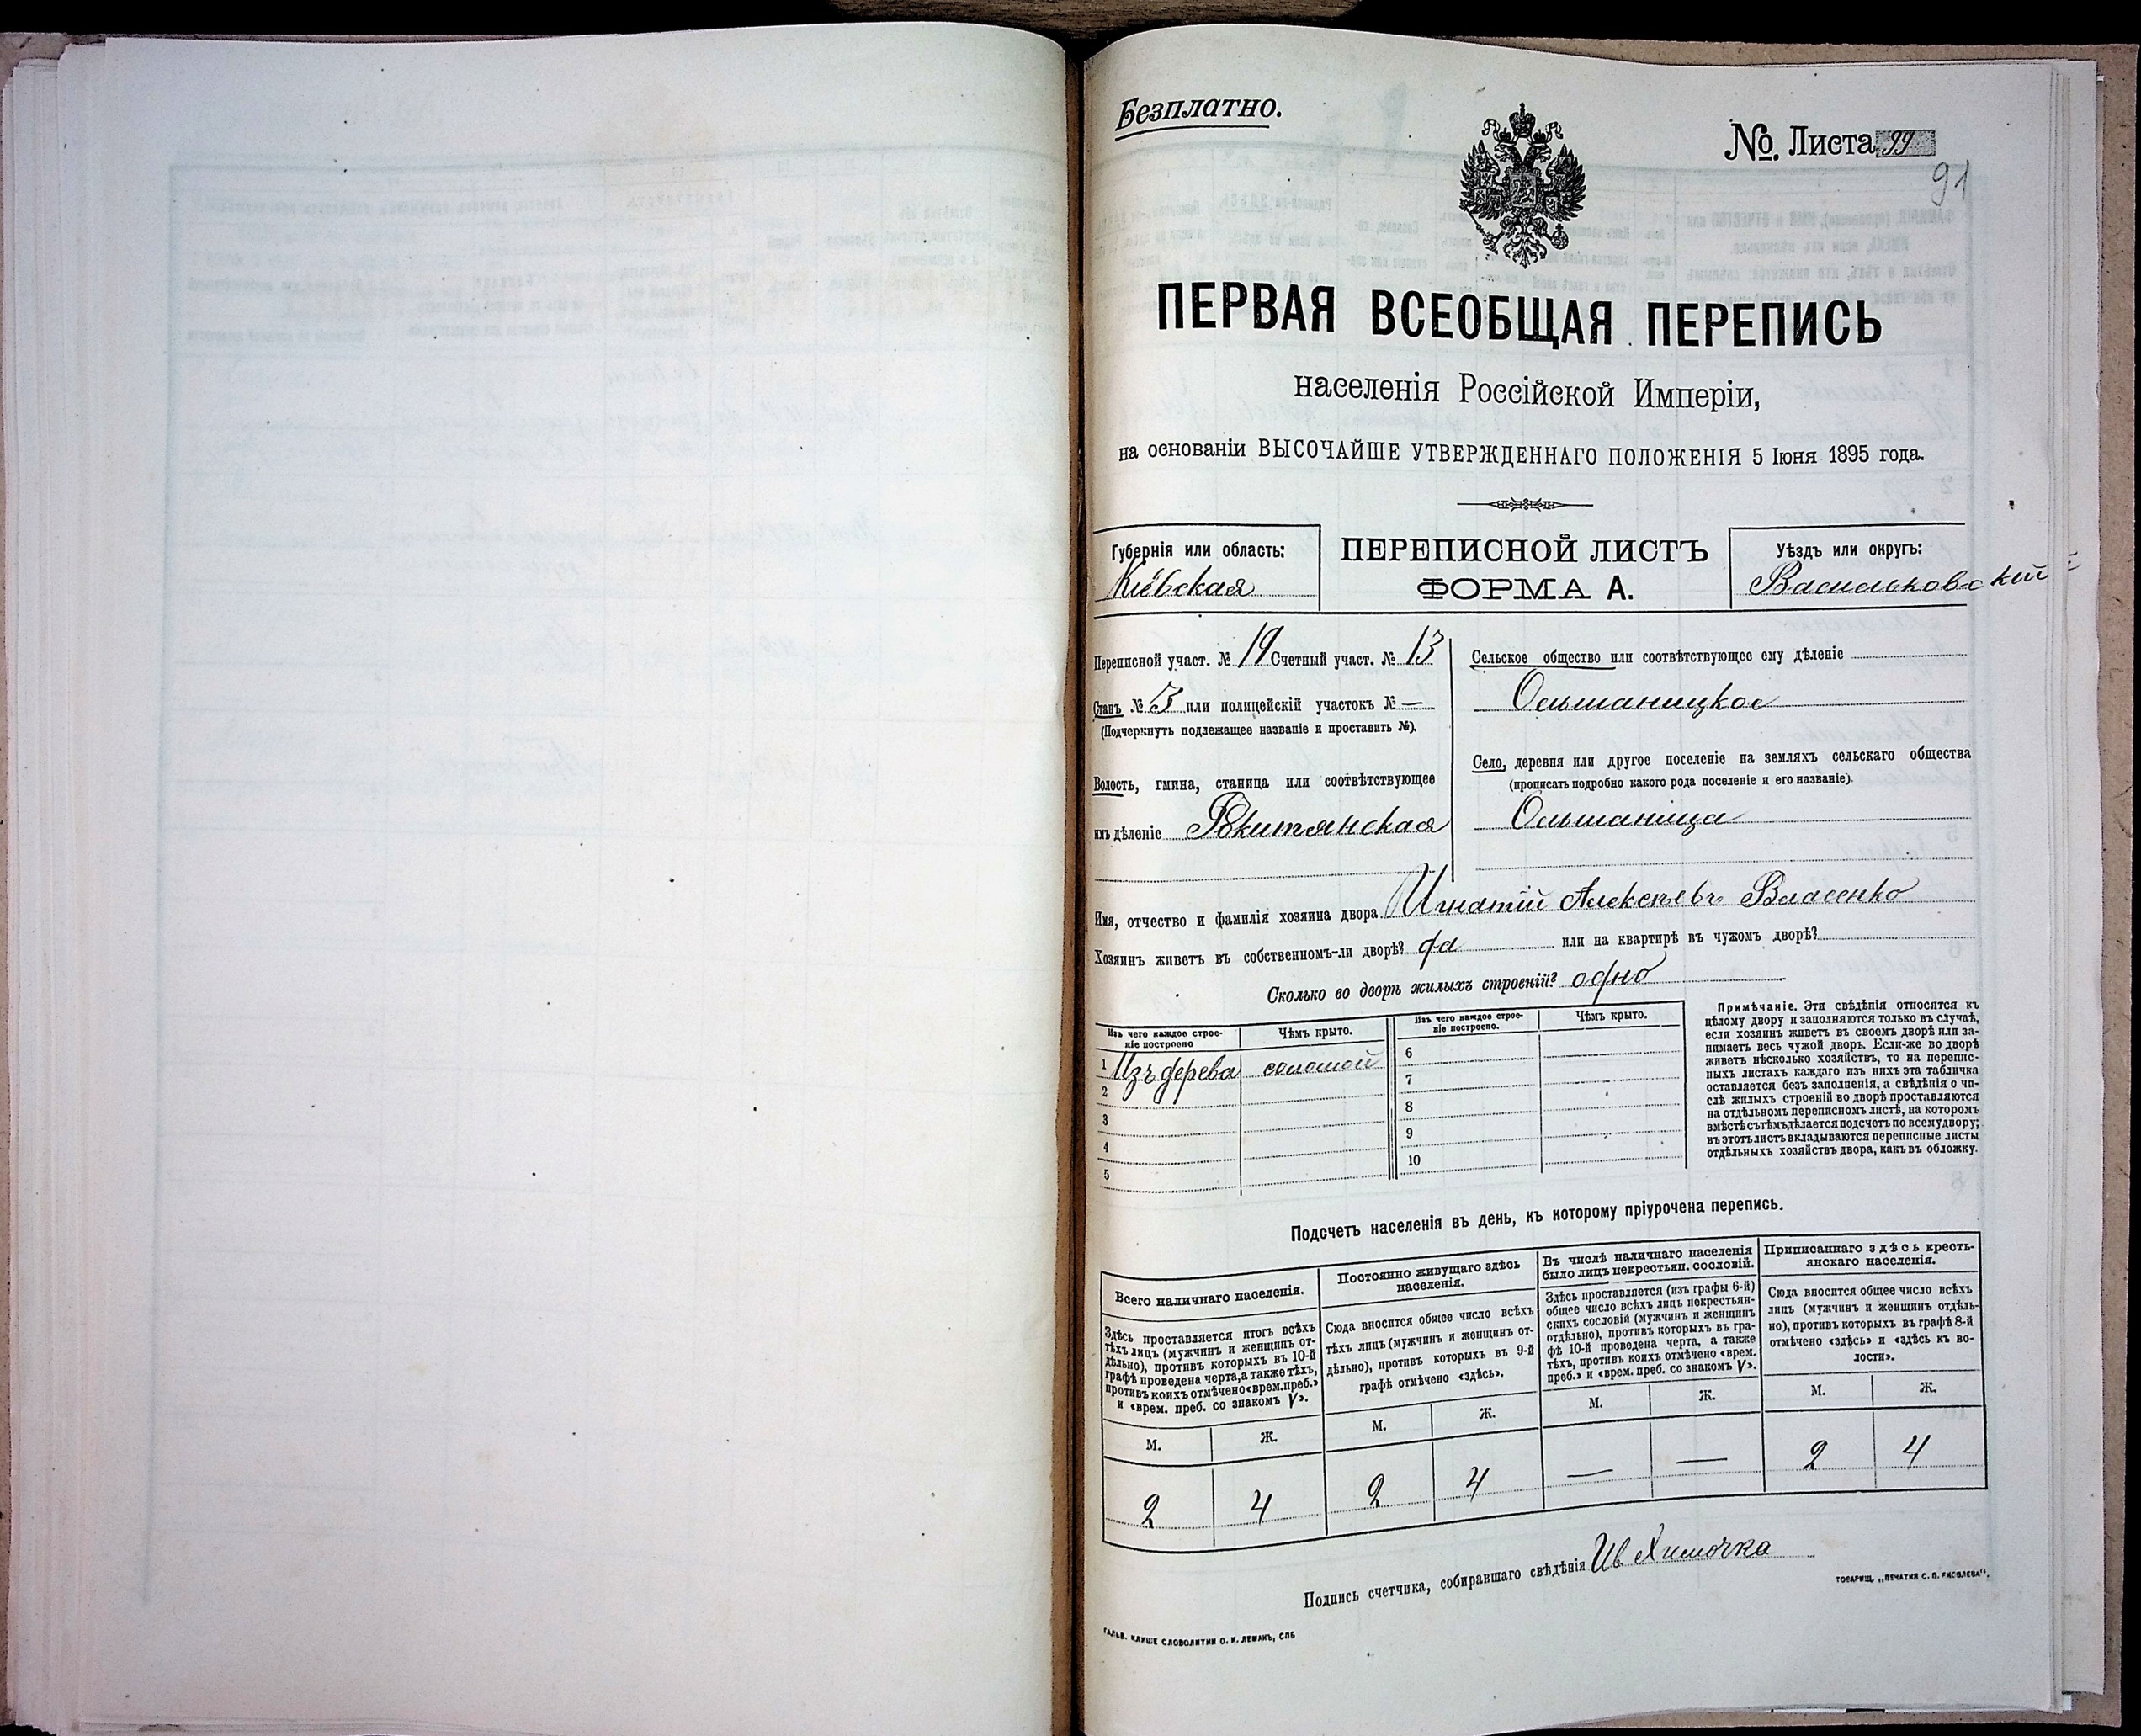 Безплатно.
№ Листа 99
91
ПЕРВАЯ ВСЕОБЩАЯ ПЕРЕПИСЬ
населенія Россійской Имперіи,
на основаніи ВЫСОЧАЙШЕ УТВЕРЖДЕННАГО ПОЛОЖЕНІЯ 5 Іюня 1895 года.
Губернія или область:
Кіевская
ПЕРЕПИСНОЙ ЛИСТЪ
ФОРМА А.
Уѣздъ или округъ:
Васильковскій
Переписной участ. № 19 Счетный участ. № 13
Станъ № 3 или полицейскій участокъ № —
(Подчеркнуть подлежащее названіе и проставить №).
Волость, гмина, станица или соотвѣтствующее
имъ дѣленіе Рокитянская
Сельское общество или соотвѣтствующее ему дѣленіе
Ольшаницкое
Село, деревня или другое поселеніе на земляхъ сельскаго общества
(прописать подробно какого рода поселеніе и его названіе).
Ольшаница
Имя, отчество и фамилія хозяина двора Игнатій Алексѣевъ Власенко
Хозяинъ живетъ въ собственномъ-ли дворѣ? да или на квартирѣ въ чужомъ дворѣ?
Сколько во дворѣ жилыхъ строеній? одно
Изъ чего каждое строе-
ніе построено
Чѣмъ крыто.
1 Изъ дерева соломой
2
3
4
5
Изъ чего каждое строе-
ніе построено.
Чѣмъ крыто.
6
7
8
9
10
Примѣчаніе. Эти свѣдѣнія относятся къ
цѣлому двору и заполняются только въ случаѣ,
если хозяинъ живетъ въ своемъ дворѣ или за-
нимаетъ весь чужой дворъ. Если-же во дворѣ
живетъ нѣсколько хозяйствъ, то на перепис-
ныхъ листахъ каждаго изъ нихъ эта табличка
оставляется безъ заполненія, а свѣдѣнія о чи-
слѣ жилыхъ строеній во дворѣ проставляются
на отдѣльномъ переписномъ листѣ, на которомъ
вмѣстѣ съ тѣмъ дѣлается подсчетъ по всему двору;
въ этотъ листъ вкладываются переписные листы
отдѣльныхъ хозяйствъ двора, какъ въ обложку.
Подсчетъ населенія въ день, къ которому пріурочена перепись.
Всего наличнаго населенія.
Здѣсь проставляется итогъ всѣхъ
тѣхъ лицъ (мужчинъ и женщинъ от-
дѣльно), противъ которыхъ въ 10-й
графѣ проведена черта, а также тѣхъ,
противъ коихъ отмѣчено «врем. преб.»
и «врем. преб. со знакомъ V».
М. Ж.
2 4
Постоянно живущаго здѣсь
населенія.
Сюда вносится общее число всѣхъ
тѣхъ лицъ (мужчинъ и женщинъ от-
дѣльно), противъ которыхъ въ 9-й
графѣ отмѣчено «здѣсь».
М. Ж.
2 4
Въ числѣ наличнаго населенія
было лицъ некрестьян. сословій.
Здѣсь проставляется (изъ графы 6-й)
общее число всѣхъ лицъ некрестьян-
скихъ сословій (мужчинъ и женщинъ
отдѣльно), противъ которыхъ въ гра-
фѣ 10-й проведена черта, а также
тѣхъ, противъ коихъ отмѣчено «врем.
преб.» и «врем. преб. со знакомъ V».
М. Ж.
— —
Приписаннаго здѣсь кресть-
янскаго населенія.
Сюда вносится общее число всѣхъ
лицъ (мужчинъ и женщинъ отдѣль-
но), противъ которыхъ въ графѣ 8-й
отмѣчено «здѣсь» и «здѣсь къ во-
лости».
М. Ж.
2 4
Подпись счетчика, собиравшаго свѣдѣнія Ив Химочка
ТОВАРИЩ. „ПЕЧАТНЯ С. П. ЯКОВЛЕВА".
ГАЛЬВ. КЛИШЕ СЛОВОЛИТНИ О. И. ЛЕМАНЪ, СПБ